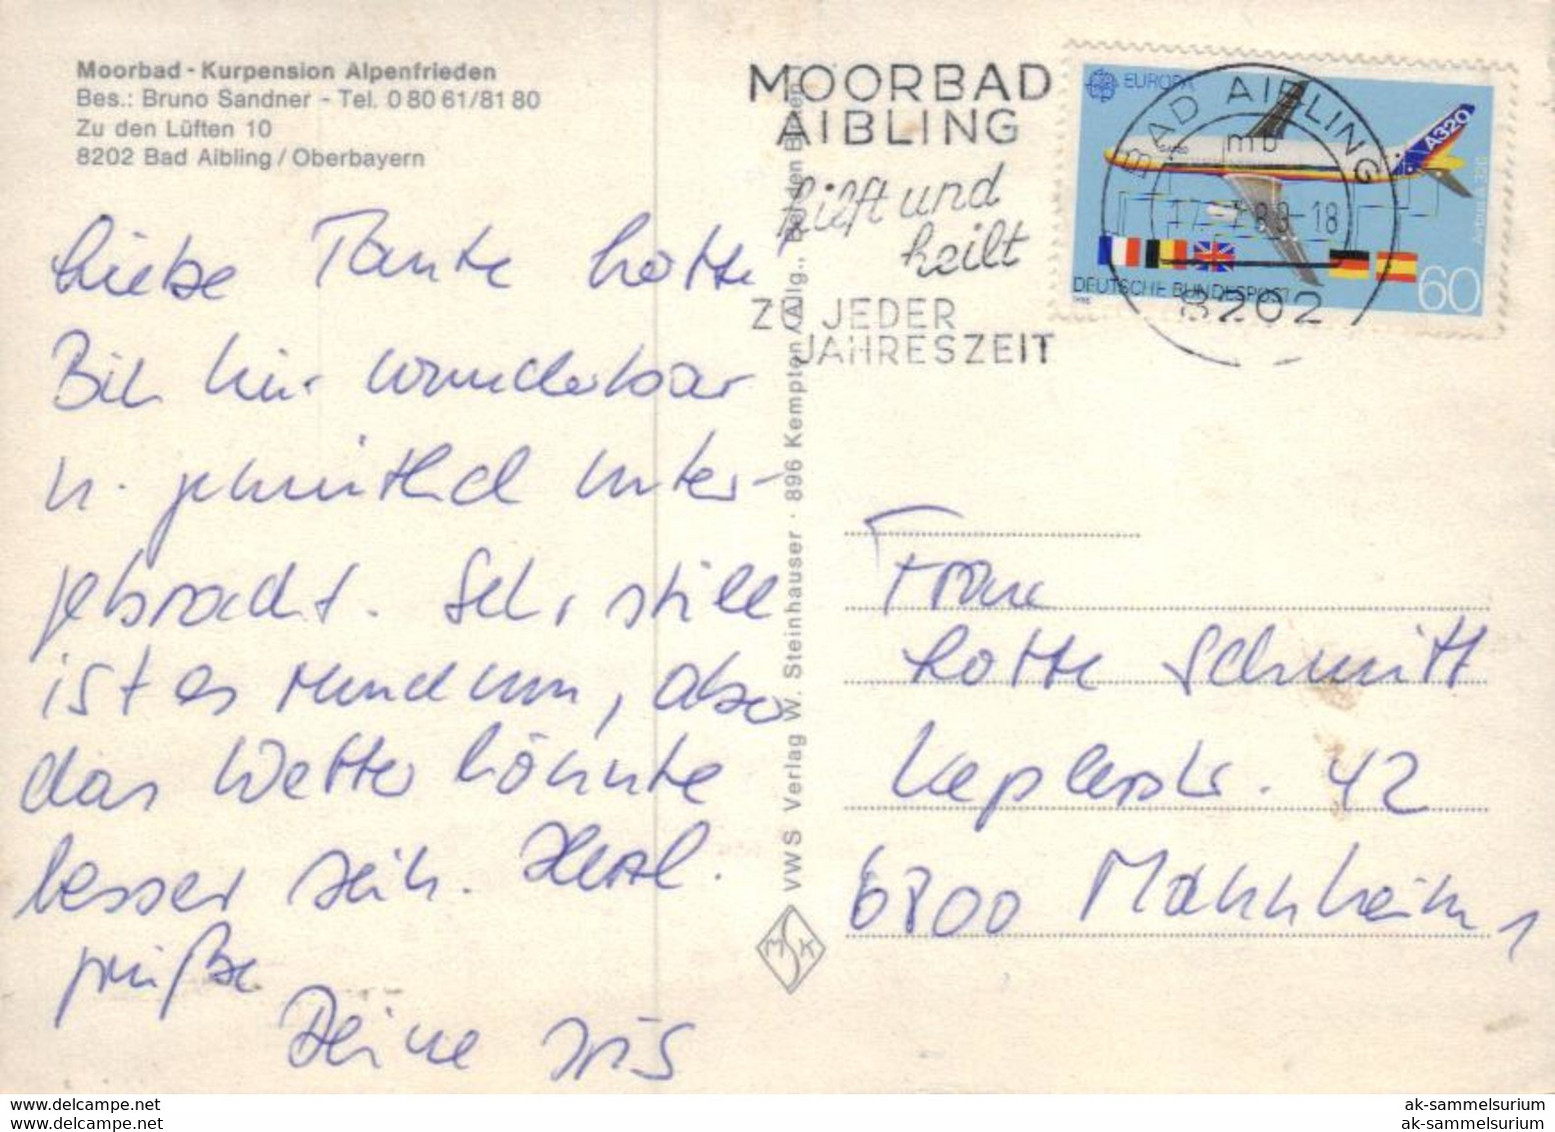 Moorbad - Kurpension Alpenfrieden
Bes.: Bruno Sandner - Tel. 0 80 61/81 80
Zu den Lüften 10
8202 Bad Aibling / Oberbayern
Liebe Tante Lotte!
Bin hier wunderbar
u. gemütlich unter-
gebracht. Sehr still
ist es rundum, aber
das Wetter könnte
besser sein. Herzl.
grüße
Deine Iris
VWS Verlag W. Steinhauser · 896 Kempten/Allg.,
MOORBAD
AIBLING
hilft und
heilt
ZU JEDER
JAHRESZEIT
BAD AIBLING
mb
88-18
8202
EUROPA
A320
Airbus A 320
DEUTSCHE BUNDESPOST
60
Frau
Lotte Schmitt
Keplerstr. 42
6800 Mannheim 1
MSK
delcampe.net
www.delcampe.net
ak-sammelsurium
ak-sammelsurium